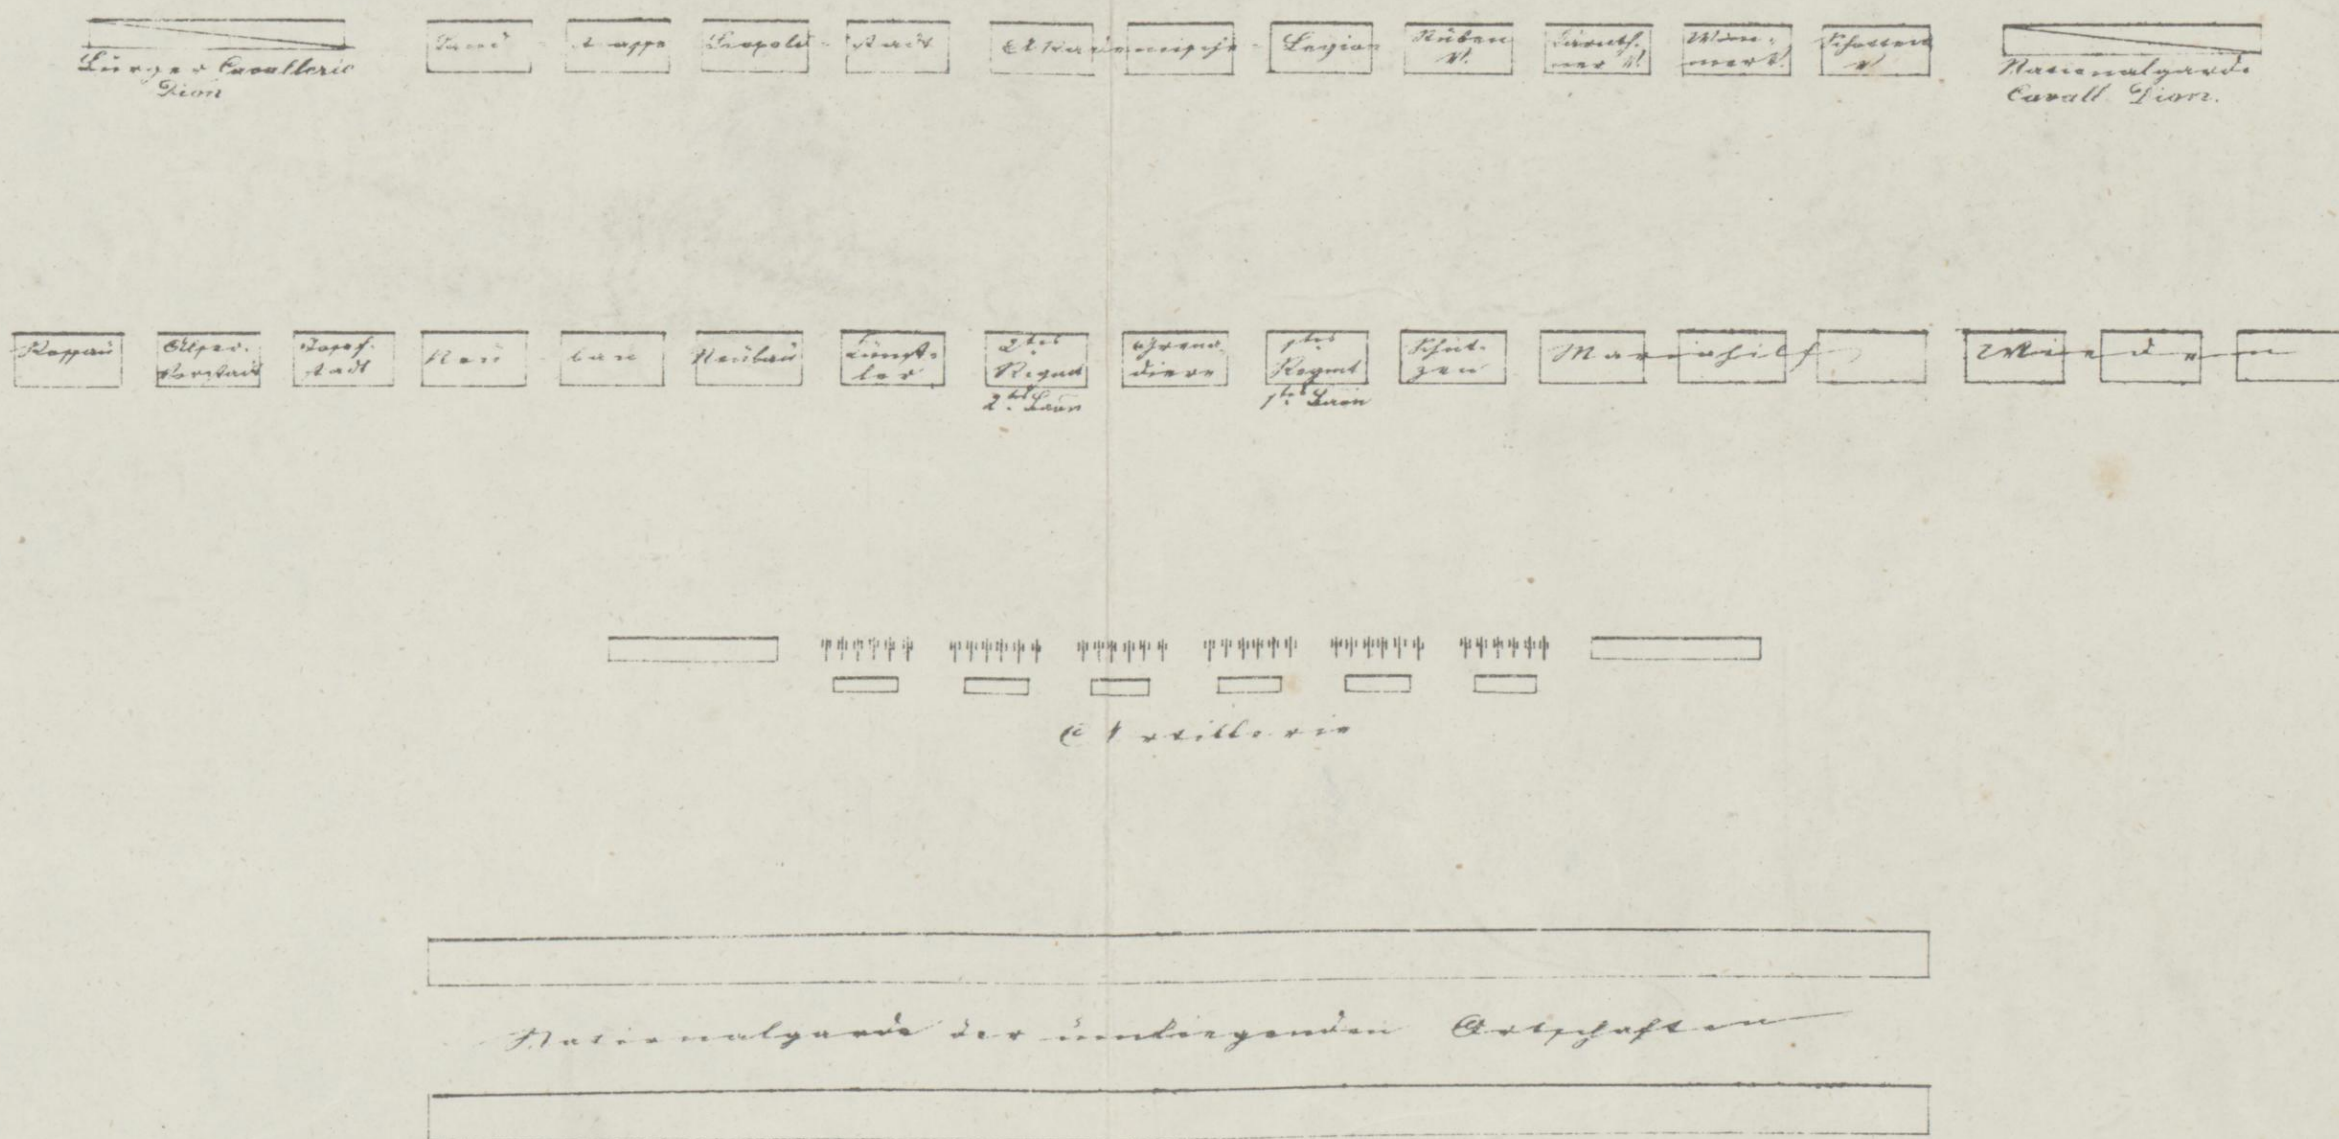 Bürger Cavallerie
Dion
Land - strasse
Leopold - stadt
Akademische - Legion
Stuben
V.
Kärnth.
ner V.
Wim-
mer V.
Schotten
V.
Nationalgarde
Cavall. Dion.
Rossau
Alser-
Vorstadt
Josef-
stadt
Neu - bau
Neubau
Künst-
ler
2tes
Regmt
2tes Baon
Grena-
diere
1tes
Regmt
1tes Baon
Schüt-
zen
Mariahilf
Wieden
Artillerie
Nationalgarde der umliegenden Ortschaften